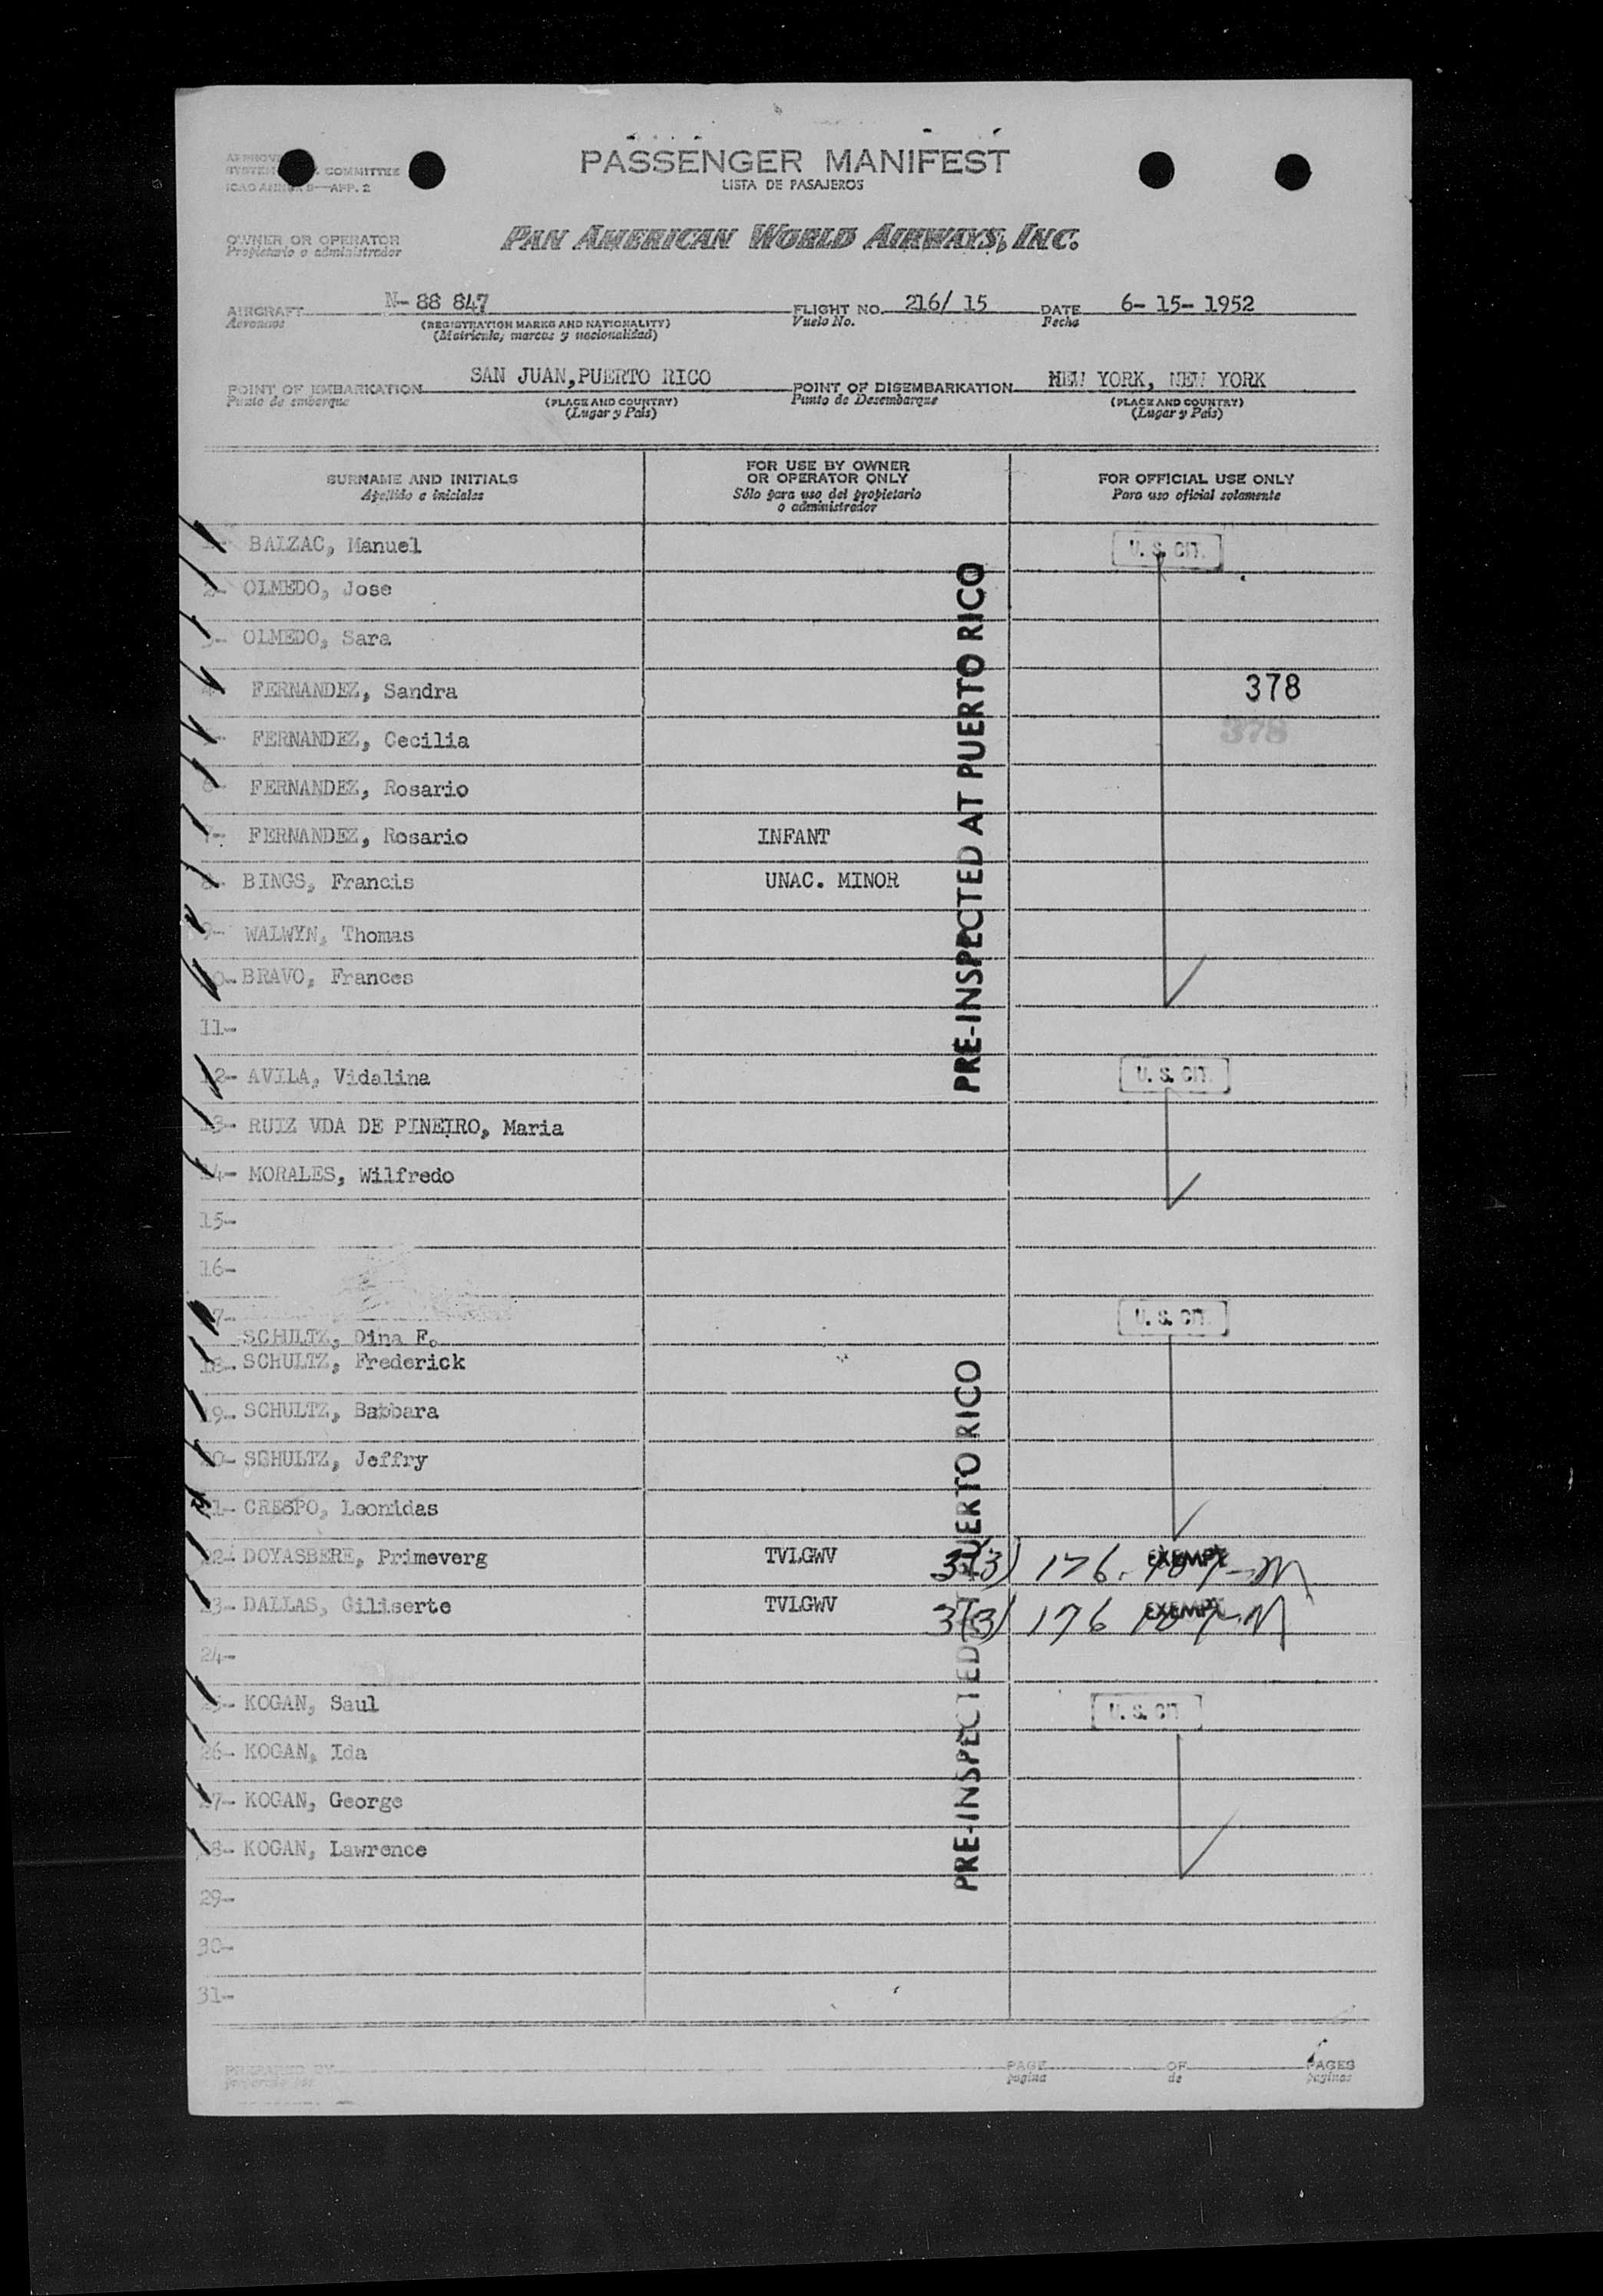 PASSENGER MANIFEST
LISTA DE PASAJEROS
COMMITTEE
APP. 2
OWNER OR OPERATOR
Propietario o administrador
PAN AMERICAN WORLD AIRWAYS, INC.
AIRCRAFT N- 88 847 FLIGHT NO. 216/ 15 DATE 6- 15- 1952
Aeronaus (REGISTRATION MARKS AND NATIONALITY) Vuelo No. Fecha
(Matricula, marcas y nacionalidad)
POINT OF EMBARKATION SAN JUAN, PUERTO RICO POINT OF DISEMBARKATION NEW YORK, NEW YORK
Punto de embarque (PLACE AND COUNTRY) Punto de Desembarque (PLACE AND COUNTRY)
(Lugar y País) (Lugar y País)
SURNAME AND INITIALS FOR USE BY OWNER OR OPERATOR ONLY FOR OFFICIAL USE ONLY
Apellido e iniciales Sólo para uso del propietario o administrador Para uso oficial solamente
BALZAC, Manuel U. S. CIT.
2- OLMEDO, Jose
3- OLMEDO, Sara
4- FERNANDEZ, Sandra 378
FERNANDEZ, Cecilia 378
6- FERNANDEZ, Rosario
7- FERNANDEZ, Rosario INFANT
8- BINGS, Francis UNAC. MINOR
9- WALWYN, Thomas
BRAVO, Frances
PRE-INSPECTED AT PUERTO RICO
11-
12- AVILA, Vidalina U. S. CIT.
13- RUIZ VDA DE PINEIRO, Maria
14- MORALES, Wilfredo
15-
16-
17- U. S. CIT.
SCHULTZ, Dina F.
18- SCHULTZ, Frederick
19- SCHULTZ, Babbara
20- SCHULTZ, Jeffry
21- CRESPO, Leonidas
22- DOYASBERE, Primeverg TVLGWV 3(3) 176. EXEMPT
23- DALLAS, Giliserte TVLGWV 3(3) 176 EXEMPT
24-
25- KOGAN, Saul U. S. CIT
26- KOGAN, Ida
27- KOGAN, George
28- KOGAN, Lawrence
PRE-INSPECTED PUERTO RICO
29-
30-
31-
PREPARED BY PAGE OF PAGES
pagina de paginas